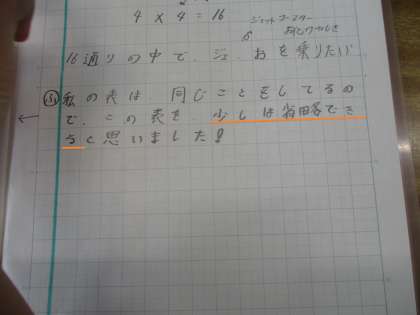 4 × 4 = 16
ジェットコースター
16通りの中で、ジ、おを乗りたい
㋵私の表は、同じことをしてるの
で、この表を、少しは省略でき
ると思いました！